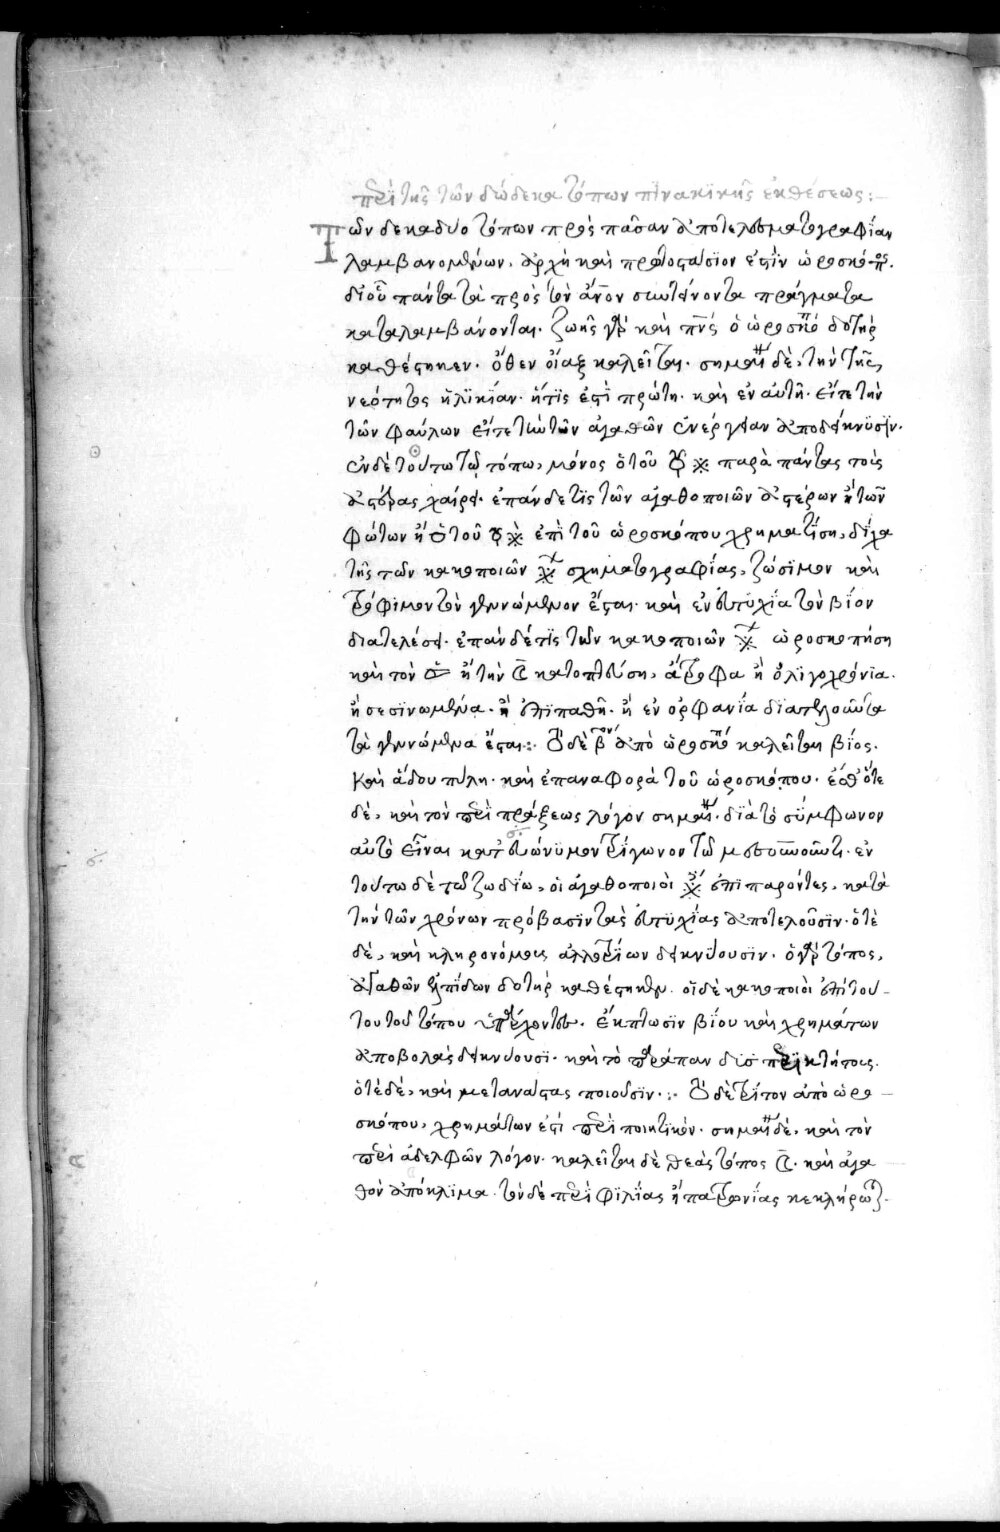 περὶ τῆς τῶν δώδεκα τόπων πϊνακϊκῆς ἐκθέσεως:
Τῶν δεκαδύο τόπων πρὸς πᾶσαν ἀποτελεσματογραφΐαν
λαμβανομένων. ἀρχὴ καὶ πρωτοστάσϊον ἐστΐν ὡροσκόπος.
δϊ οὗ πάντα τὰ πρὸς τὸν ἄνον συντείνοντα πράγματα
καταλαμβάνονται. ζωῆς γὰρ καὶ πνς ὁ ὡροσκόπος δοτὴρ
καθέστηκεν. ὅθεν οἴαξ καλεῖται. σημαίνει δὲ, τὴν τῆς
νεότητος ἡλϊκΐαν. ἥτϊς ἐστὶ πρώτη. καὶ ἐν αὐτῆ. εἴτε τὴν
τῶν φαύλων εἴτε τὴν τῶν ἀγαθῶν ἐνέργειαν ἀποδείκνϋσϊν.
ἐν δὲ τούτω τῶ τόπω, μόνος ὁ τοῦ ☿ παρὰ πάντας τοὺς
ἀστέρας χαίρει. ἐπὰν δὲ τϊς τῶν ἀγαθοποιῶν ἀστέρων ἢ τῶν
φώτων ἢ ὁ τοῦ ☿ ἐπὶ τοῦ ὡροσκόπου χρηματΐση, δΐχα
τῆς τῶν κακοποιῶν σχηματογραφίας, ζώσϊμον καὶ
τρόφϊμον τὸν γεννώμενον ἔσται. καὶ ἐν εὐτϋχΐα τὸν βΐον
διατελέσει. ἐπὰν δέ τϊς τῶν κακοποιῶν ὡροσκοπήση
καὶ τὸν ἢ τὴν ☾ κατοπτεύση, ἄτροφα ἢ ὀλϊγοχρόνϊα.
ἢ σεσϊνωμένα. ἢ ἐπϊπαθῆ. ἢ ἐν ὀρφανΐα δϊατελοῦντα
τὰ γεννώμενα ἔσται:. Ὁ δὲ β ἀπὸ ὡροσκόπου καλεῖται βΐος.
Καὶ ἅδου πύλη. καὶ ἐπαναφορὰ τοῦ ὡροσκόπου. ἐσθ ὅτε
δὲ, καὶ τὸν περὶ πράξεως λόγον σημαίνει. δϊὰ τὸ σύμφωνον
αὐτὸ εἶναι κατ εὐώνϋμον τρΐγωνον τῶ μεσουρανοῦντι. ἐν
τούτω δὲ τῶ ζωδΐω, οἱ ἀγαθοποιοὶ ἐπϊπαρόντες, κατὰ
τὴν τῶν χρόνων πρόβασϊν τὰς εὐτϋχΐας ἀποτελοῦσϊν. ὁτὲ
δὲ, καὶ κληρονόμους ἀλλοτρΐων δεικνύουσϊν. ὁ γὰρ τόπος,
ἀγαθῶν ἐλπΐδων δοτὴρ καθέστηκεν. οἱ δὲ κακοποιοὶ ἐπὶ τού-
του τοῦ τόπου ὑπάρχοντες. ἔκπτωσϊν βΐου καὶ χρημάτων
ἀποβολὰς δεικνύουσϊ. καὶ τὸ παράπαν δυσπερϊκτήτους.
ὁτὲ δὲ, καὶ μετανάστας ποιοῦσϊν.:. Ὁ δὲ τρΐτον ἀπὸ ὡρο-
σκόπου, χρημάτων ἐστὶ περϊποιητϊκόν. σημαίνει δὲ, καὶ τὸν
περὶ ἀδελφῶν λόγον. καλεῖται δὲ θεᾶς τόπος ☾. καὶ ἀγα
θὸν ἀπόκλϊμα. τὸν δὲ περὶ φϊλΐας ἢ πατρωνΐας κεκλήρωται.